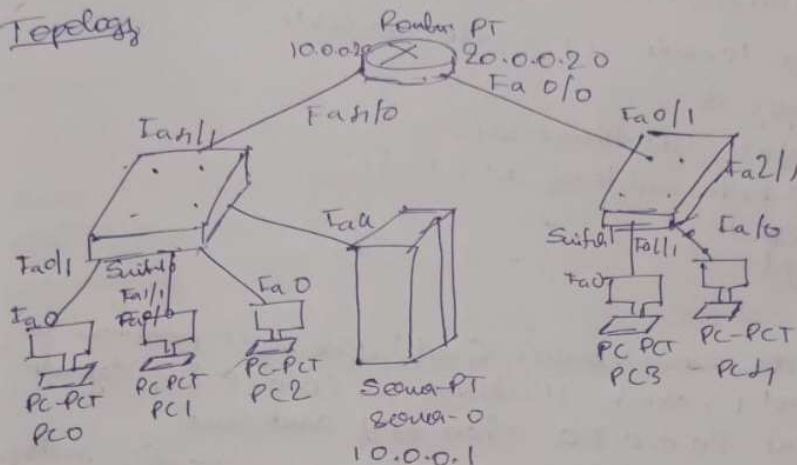 Topology
Router PT
10.0.0.20
20.0.0.20
Fa 0/0
Fa4/0
Fa4/1
Fa0/1
Fa2/1
Fa0/1
Switch
Fa1/1
Fa0
Fa0
Fa0
Switch
Fa1/1
Fa0
PC-PCT
PC0
PC PCT
PC1
PC-PCT
PC2
Server-PT
Server-0
10.0.0.1
PC PCT
PC3
PC-PCT
PC4